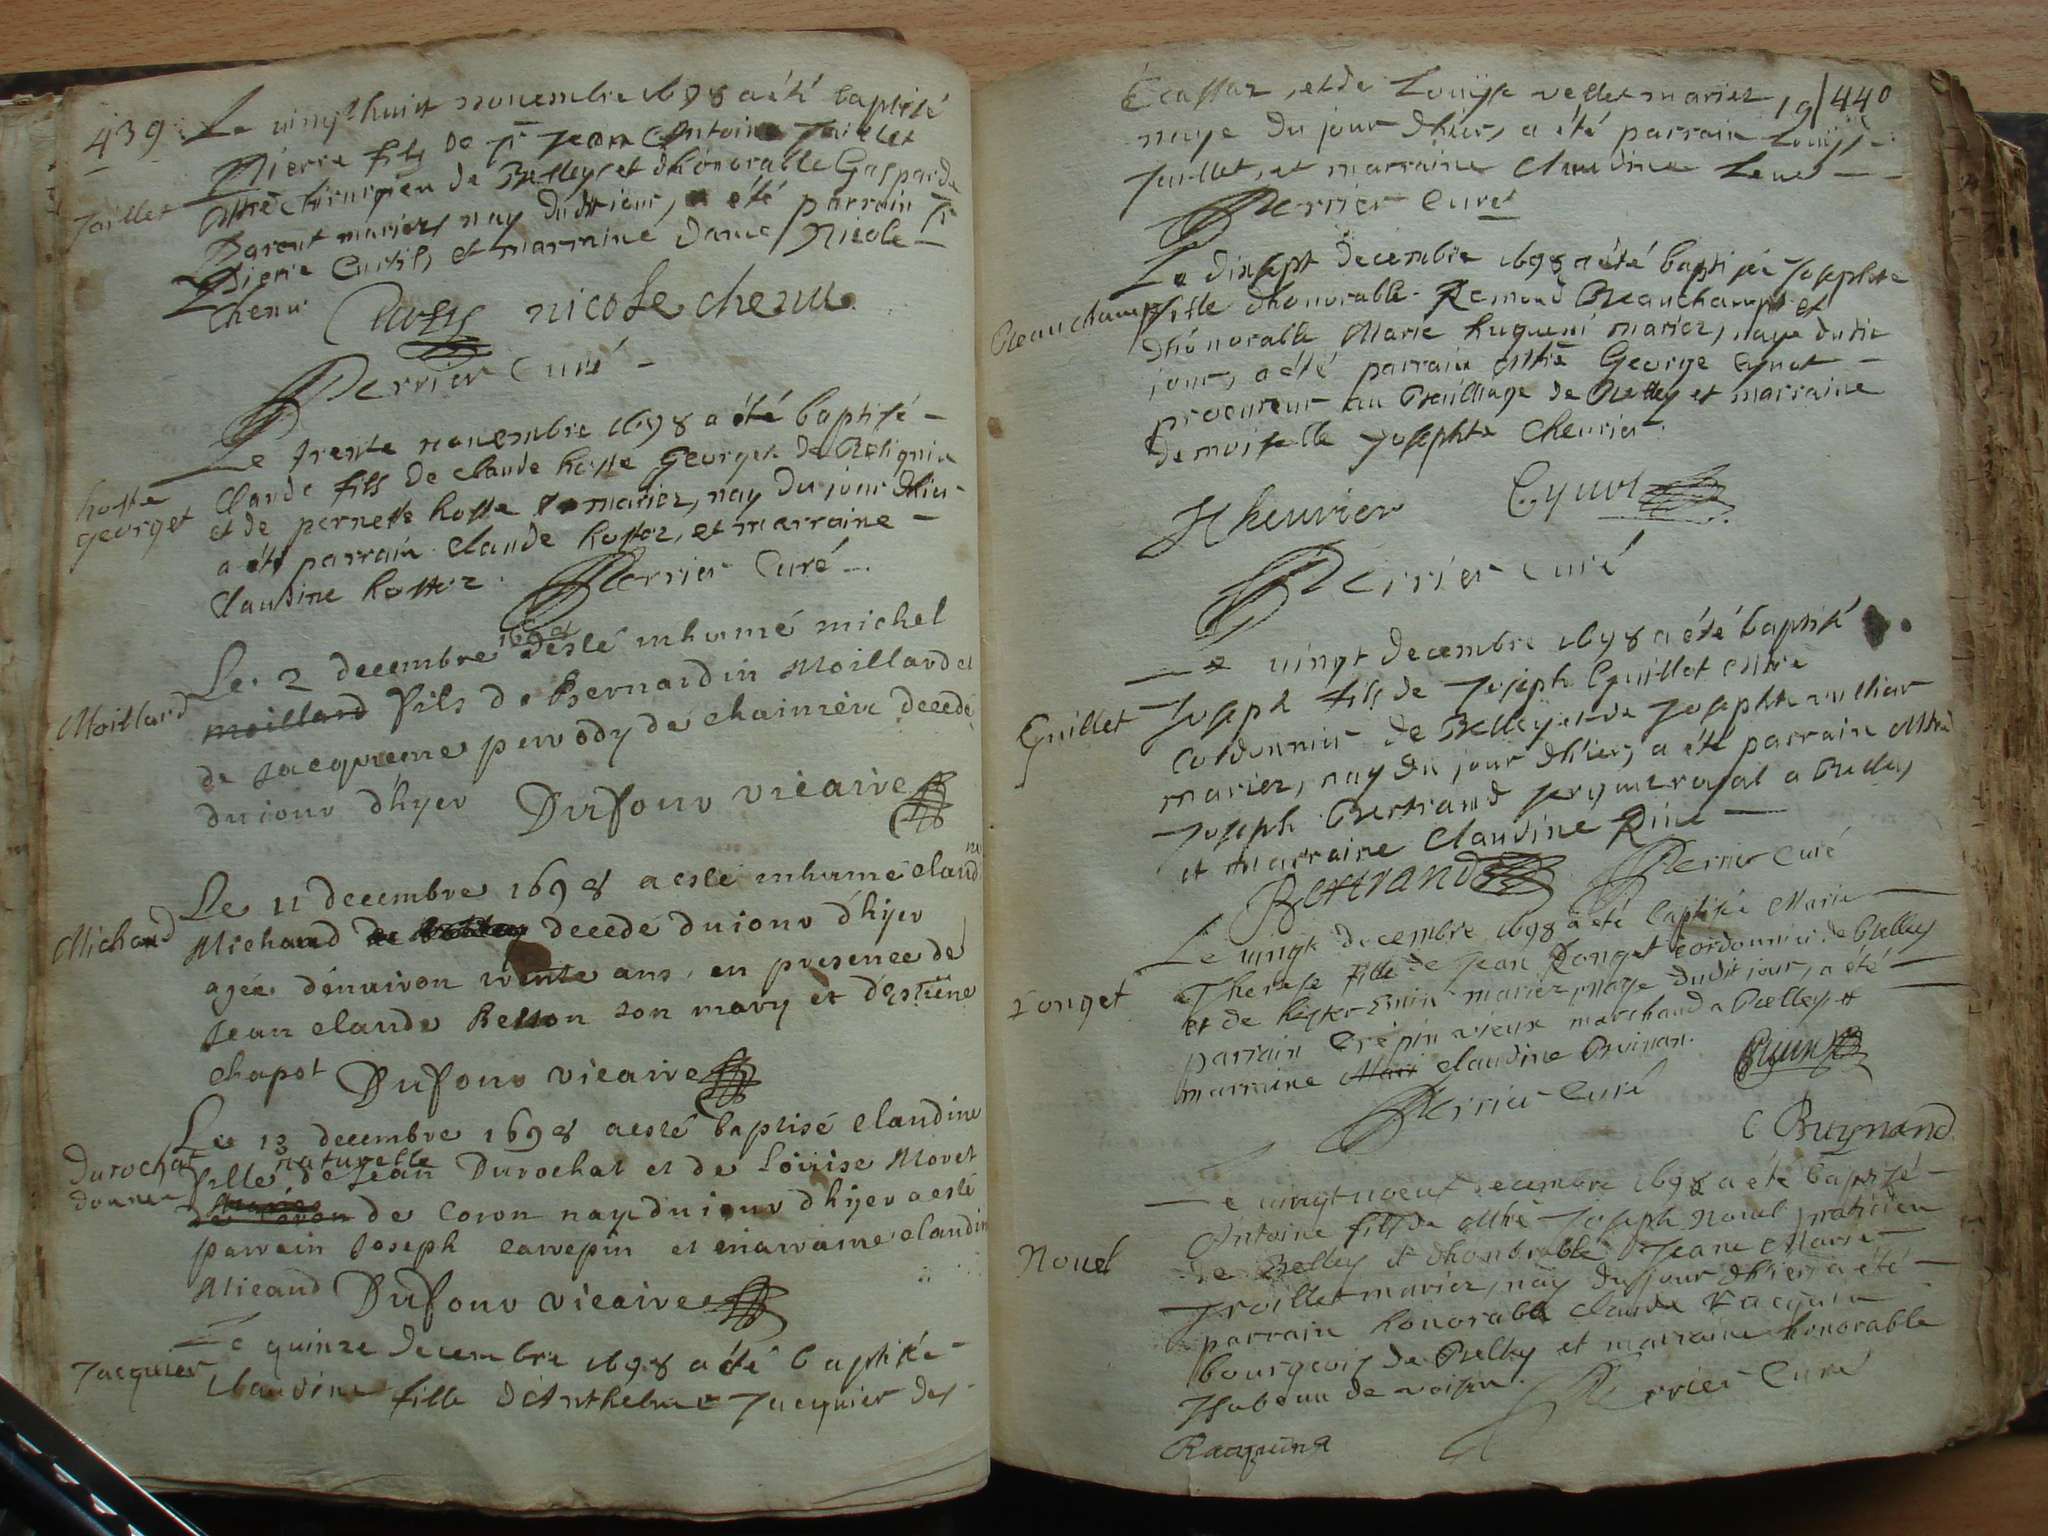 439
Le vingthuit novembre 1698 a été baptisé
Pierre fils de Sr Jean Antoine Juillet
Mtre Chirurgien de Belley et dhonorable Gasparde
Juillet
Parent mariez, nay dudit jour, a été parrain Sr
Pierre Curtil, et marraine dame Nicole
Chenu
nicole chenu
Perrier Curé
Le trente novembre 1698 a été baptisé
Claude fils de Claude hoste Georget de
hoste
georget
et de pernette hoste mariez, nay du jour dhier
a été parrain Claude hostez, et marraine
Claudine hostez. Perrier Curé
Le 2 decembre 1698 a esté inhumé michel
Moillard
moillard fils de Bernardin Moillard et
de Jacqueme perrody de decedé
du jour dhyer Dufour vicaire
Le 11 decembre 1698 a esté inhumé claudine
Michaud
Michaud decedé du jour dhyer
agée denuiron trente ans, en presence de
Jean claude Besson son mary et destiene
chapot Dufour vicaire
Le 13 decembre 1698 a esté baptisé claudine
durochat
fille naturelle de Jean Durochat et de Louise Moret
de Coron nay du jour dhyer a esté
parrain Joseph carrepin et marraine claudine
Micaud Dufour vicaire
Le quinze decembre 1698 a été baptisée
Jacquier
Claudine fille dAnthelme Jacquier des
19/440
Ecassaz, et de Louyse vellet mariez
naye du jour dhier, a été parrain Louys
Juillet, et marraine Claudine
Perrier Curé
Le dixsept decembre 1698 a été baptisée Josephte
Beauchamp
fille dhonorable Remond Beauchamp et
dhonorable Marie huguení mariez, naye dudit
jour, a été parrain Mtre George Cynot
procureur au Bailliage de Belley et marraine
demoiselle Josephte Chevrier.
JChevrier
Perrier Curé
Le vingt decembre 1698 a été baptisé
Joseph fils de Joseph Guillet Mtre
Guillet
Cordonnier de Belley et de Josephte
mariez, nay du jour dhier, a été parrain Mtre
Joseph Bertrand sergent royal a Belley
et marraine Claudine
Bertrand Perrier Curé
Le vingt decembre 1698 a été baptisée Marie
Therese fille de Jean Ronget cordonnier de Belley
ronget
et de hester mariez, naye dudit jour, a été
parrain Crépin vieux marchand a Belley et
marraine Claudine
Perrier Curé
C Buynand
Le vingtneuf decembre 1698 a été baptisé
Antoine fils de Mtre Joseph Nouel praticien
Nouel
de Belley et dhonorable Jeane Marie
Troillet mariez, nay du jour dhier, a été
parrain honorable Claude Racquin
bourgeois de Belley et marraine honorable
Isabeau de voisin. Perrier Curé
Racquin